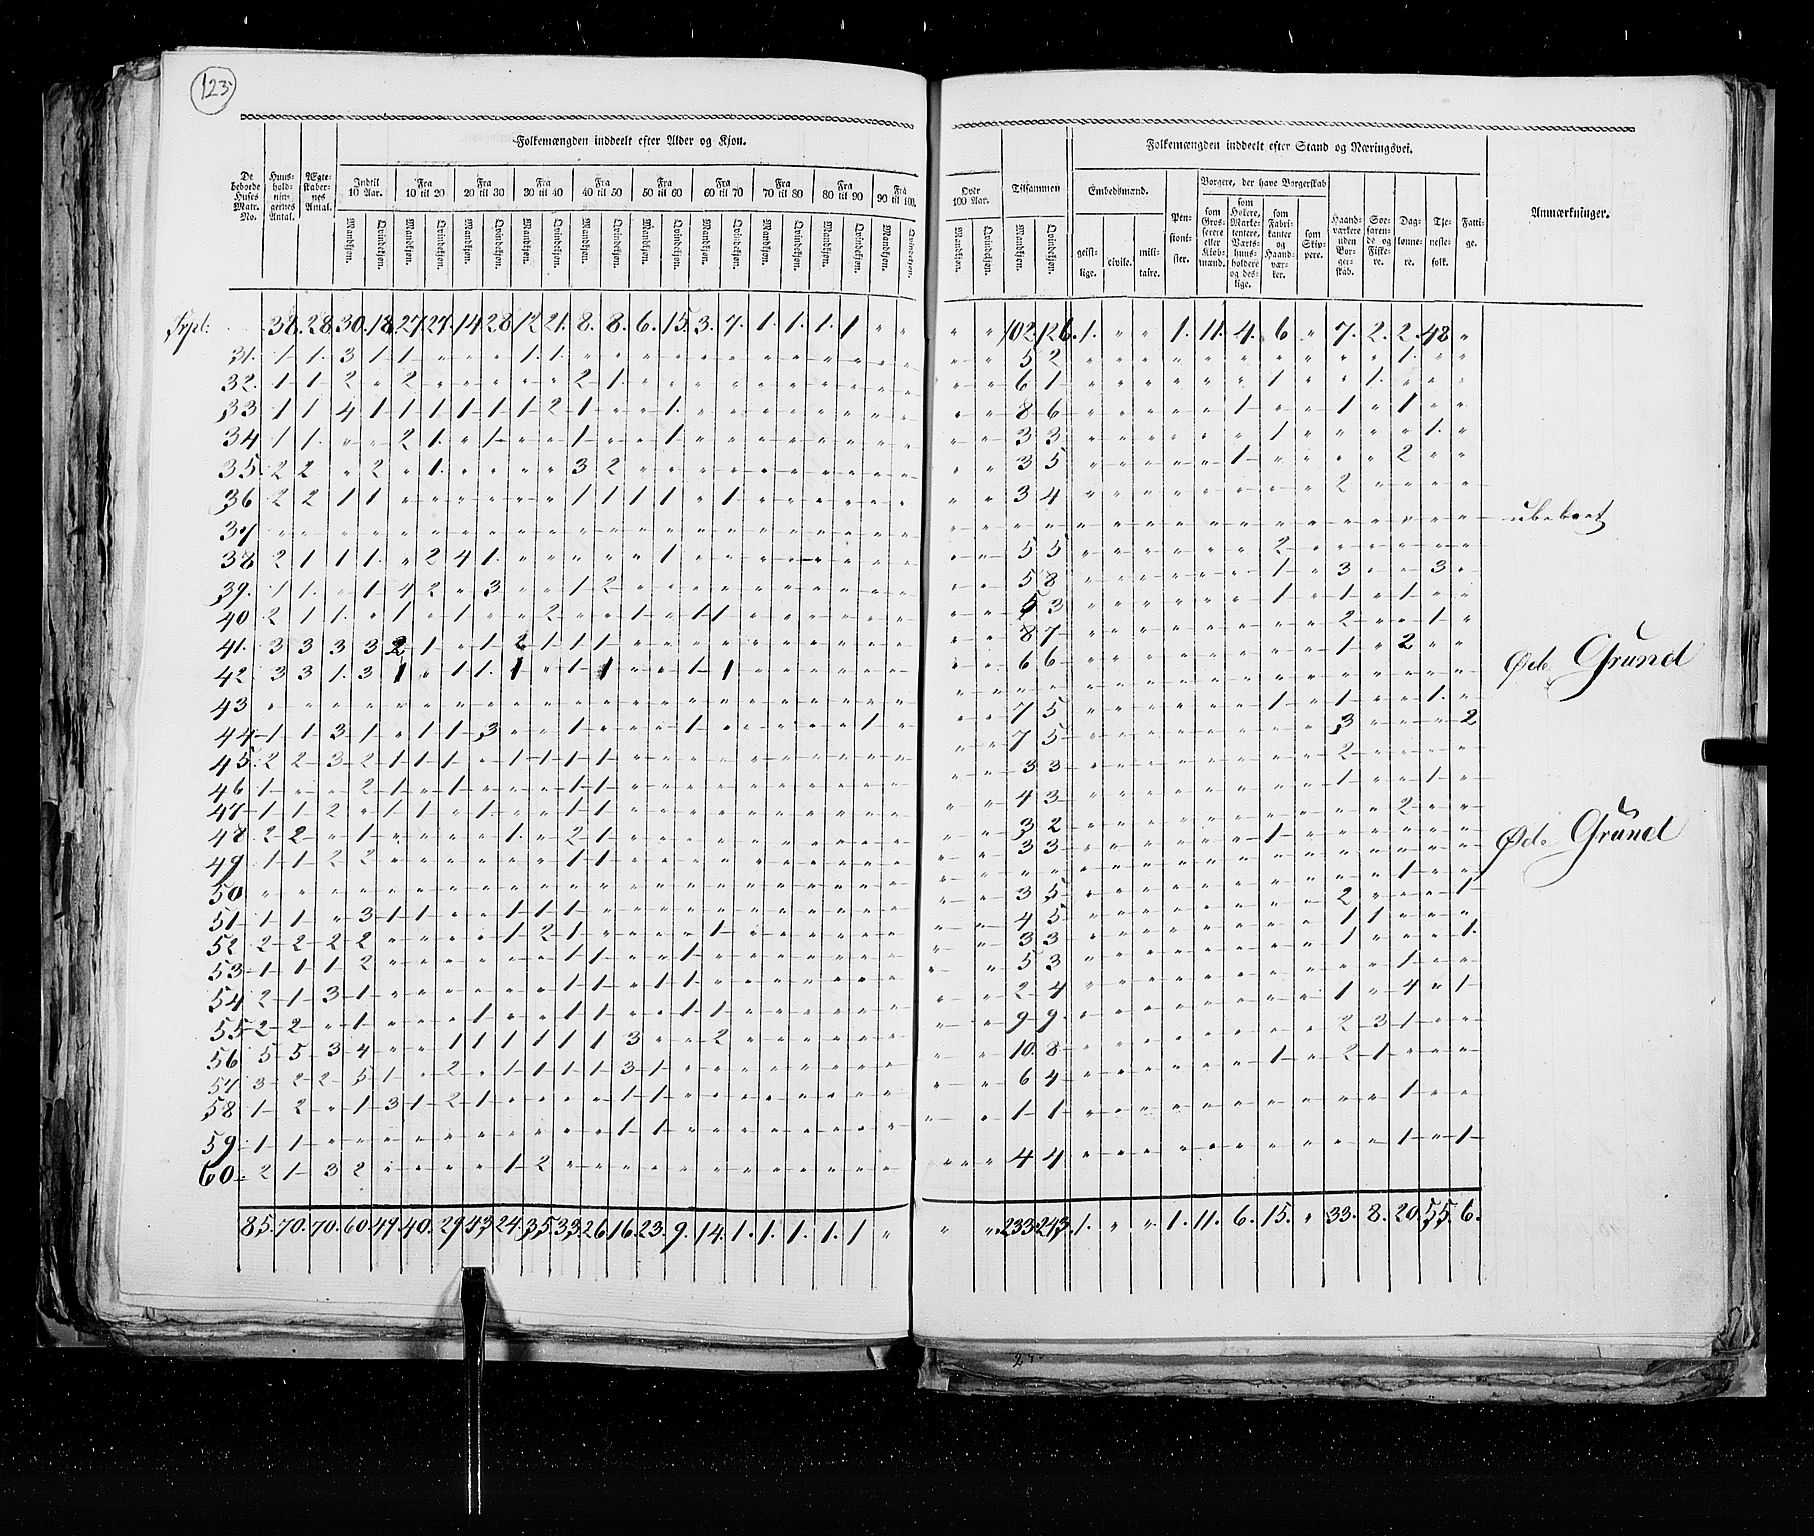 123.
Folkemængden inddeelt efter Alder og Kjøn.
Folkemængden inddeelt efter Stand og Næringsvei.
De beboede Huses Matr. No.
Huusholdningernes Antal.
Ægteskabernes Antal.
Indtil 10 Aar.
Fra 10 til 20
Fra 20 til 30
Fra 30 til 40
Fra 40 til 50
Fra 50 til 60
Fra 60 til 70
Fra 70 til 80
Fra 80 til 90
Fra 90 til 100.
Over 100 Aar.
Tilsammen
Mandkjøn. Qvindekjøn.
Embedsmænd.
geistlige. civile. militaire.
Pensionister.
Borgere, der have Borgerskab
som Grosserere eller Kjøbmænd.
som Høkere, Marketentere, Værtshuusholdere og deslige.
som Fabrikanter og Haandværker.
som Skippere.
Haandværkere uden Borgerskab.
Søefarende og Fiskere.
Daglønnere.
Tjenestefolk.
Fattige.
Anmærkninger.
Trpt: 38. 28. 30. 18. 27. 27. 14. 28. 12. 21. 8. 8. 6. 15. 3. 7. 1. 1. 1. 1 " " " " 102. 126. 1. " " 1. 11. 4. 6 " 7. 2. 2. 48 "
31. 1 1. 3 1 1 " " " 1. 1. " " " " " " " " " " " " " " 5 2 " " " " " " " " " " 1. " "
32. 1 1 2 " 2 " " " " " 2 1. " " " " " " " " " " " " 6 1 " " " " " " 1 " " 1. " " "
33 1 1 4 1 1 1 1 1 1 2 1 " " 1. " " " " " " " " " " 8 6 " " " " " 1 " " 1 " 1 " "
34 1 1. " " 2 1. " 1 " " 1 " " 1 " " " " " " " " " " 3 3 " " " " " " 1 " " " " 1. "
35. 2 2 " 2 " 1. " " " " 3 2 " " " " " " " " " " " " 3 5 " " " " " 1 " " " " 2 " "
36 2 2 1 1 " " " " " " 1 1 1 1 " 1 " " " " " " " " 3 4 " " " " " " " " 2 " " " "
37 " " " " " " " " " " " " " " " " " " " " " " " " " " " " " " " " " " " " " " " ubeboet
38 2 1 1 1. " 2 4 1. " " " " " 1 " " " " " " " " " " 5 5 " " " " " " 2 " " " " " "
39. 1 1. " 1 1 2 " 3 " " 1 2 " " " " " " " " " " " " 5 8 " " " " " " 1 " 3 " " 3 "
40 2 1 1. " 1 " 1 " " 2 " " 1 " 1 1 " " " " " " " " 5 3 " " " " " " 1 " 1 " 1 " "
41. 3 3 3 3 2 1 " 1 2 1 1 1 " " " " " " " " " " " " 8 7 " " " " " " " " 2 " " 1 "
42 3 3 1. 3 1 " 1 1. 1 " 1 1 " " 1 1 " " " " " " " " 6 6 " " " " " " " " 1 " 2 " "
43 " " " " " " " " " " " " " " " " " " " " " " " " " " " " " " " " " " " " " " " Øde Grund
44 1 1 3 1 " 1 1 3 " " 1 " " " 1 " " " " " 1 " " " 7 5 " " " " " " 1 " 1 " " 1. "
45. 2 2 3 2 1 1 1 " 1 1 1 1 " " " " " " " " " " " " 7 5 " " " " " " " " 3 " " " 2
46 1 " " 2 1 " 1 " " " 1 1 " " " " " " " " " " " " 3 3 " " " " " " " " 2 " " " "
47 1 1 2 " 1 1 " 1. " " 1 1 " " " " " " " " " " " " 4 3 " " " " " " " " 1 " " 1 "
48 2 2 " 1 " " " " 1. " 2 1 " " " " " " " " " " " " 3 2 " " " " " " " " " " 2 " "
49 1 1 2 2 " " " " " " 1 1 " " " " " " " " " " " " 3 3 " " " " " " 1 " " " " " "
50 " " " " " " " " " " " " " " " " " " " " " " " " " " " " " " " " " " " " " " " Øde Grund
51 1 1 " 3 1 1 " " 1 1 1 " " " " " " " " " " " " " 3 5 " " " " " " " " " " 1 " "
52 2 2 2 2 " " " " 1 2 1 " " " " 1 " " " " " " " " 4 5 " " " " " " " " 2 " " " 1
53 1 1 1 2 " " " " " " 1 1 " 1 " " " " " " " " " 3 3 " " " " " " " " 1 1 " " "
54 2 1 3 1 " " " " " " 1 1 " 1 1 " " " " " " " " 5 3 " " " " " " " " 1 " " " 1.
55 2 2 " 1 " " " 1 " " 1 1 " " 1 1 " " " " " " " 2 4 " " " " " " " " " " 1 " "
56 5 5 3 4 " " 1 1 1 1 1 1 3 " " 2 " " " " " " " " 9 9 " " " " " " " " 1 " 4 " 1
57 3 2 2 5 1 " 2 " 1 1 1 1 3 1 " " " " " " " " " " 10. 8 " " " " " " " " 2 3 1 " "
58 1 2 " 1 3 1 2 1 " " " " 1 1 " " " " " " " " " " 6 4 " " " " " " 1 " 2 1 " " "
59. 1 1 " " " " " " " " " " 1 1 " " " " " " " " " " 1 1 " " " " " " " " " " 1 " "
60. 2 1 3 2 " " " " 1 2 " " " " " " " " " " " " " " 4 4 " " " " " " " " " " 1 " 1
85. 70. 70. 60. 49. 40. 29 43 24. 35. 33. 26 16. 23. 9. 14. 1. 1. 1. 1. 1 " " " 233. 243. 1. " " 1. 11. 6. 15. " 33. 8. 20. 55. 6.